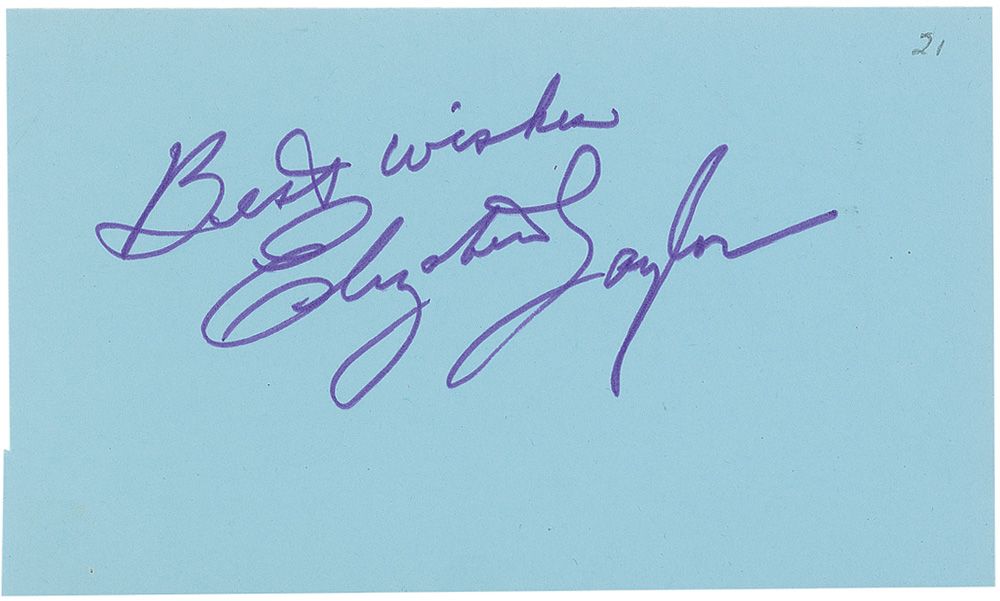 21
Best wishes
Elizabeth Taylor